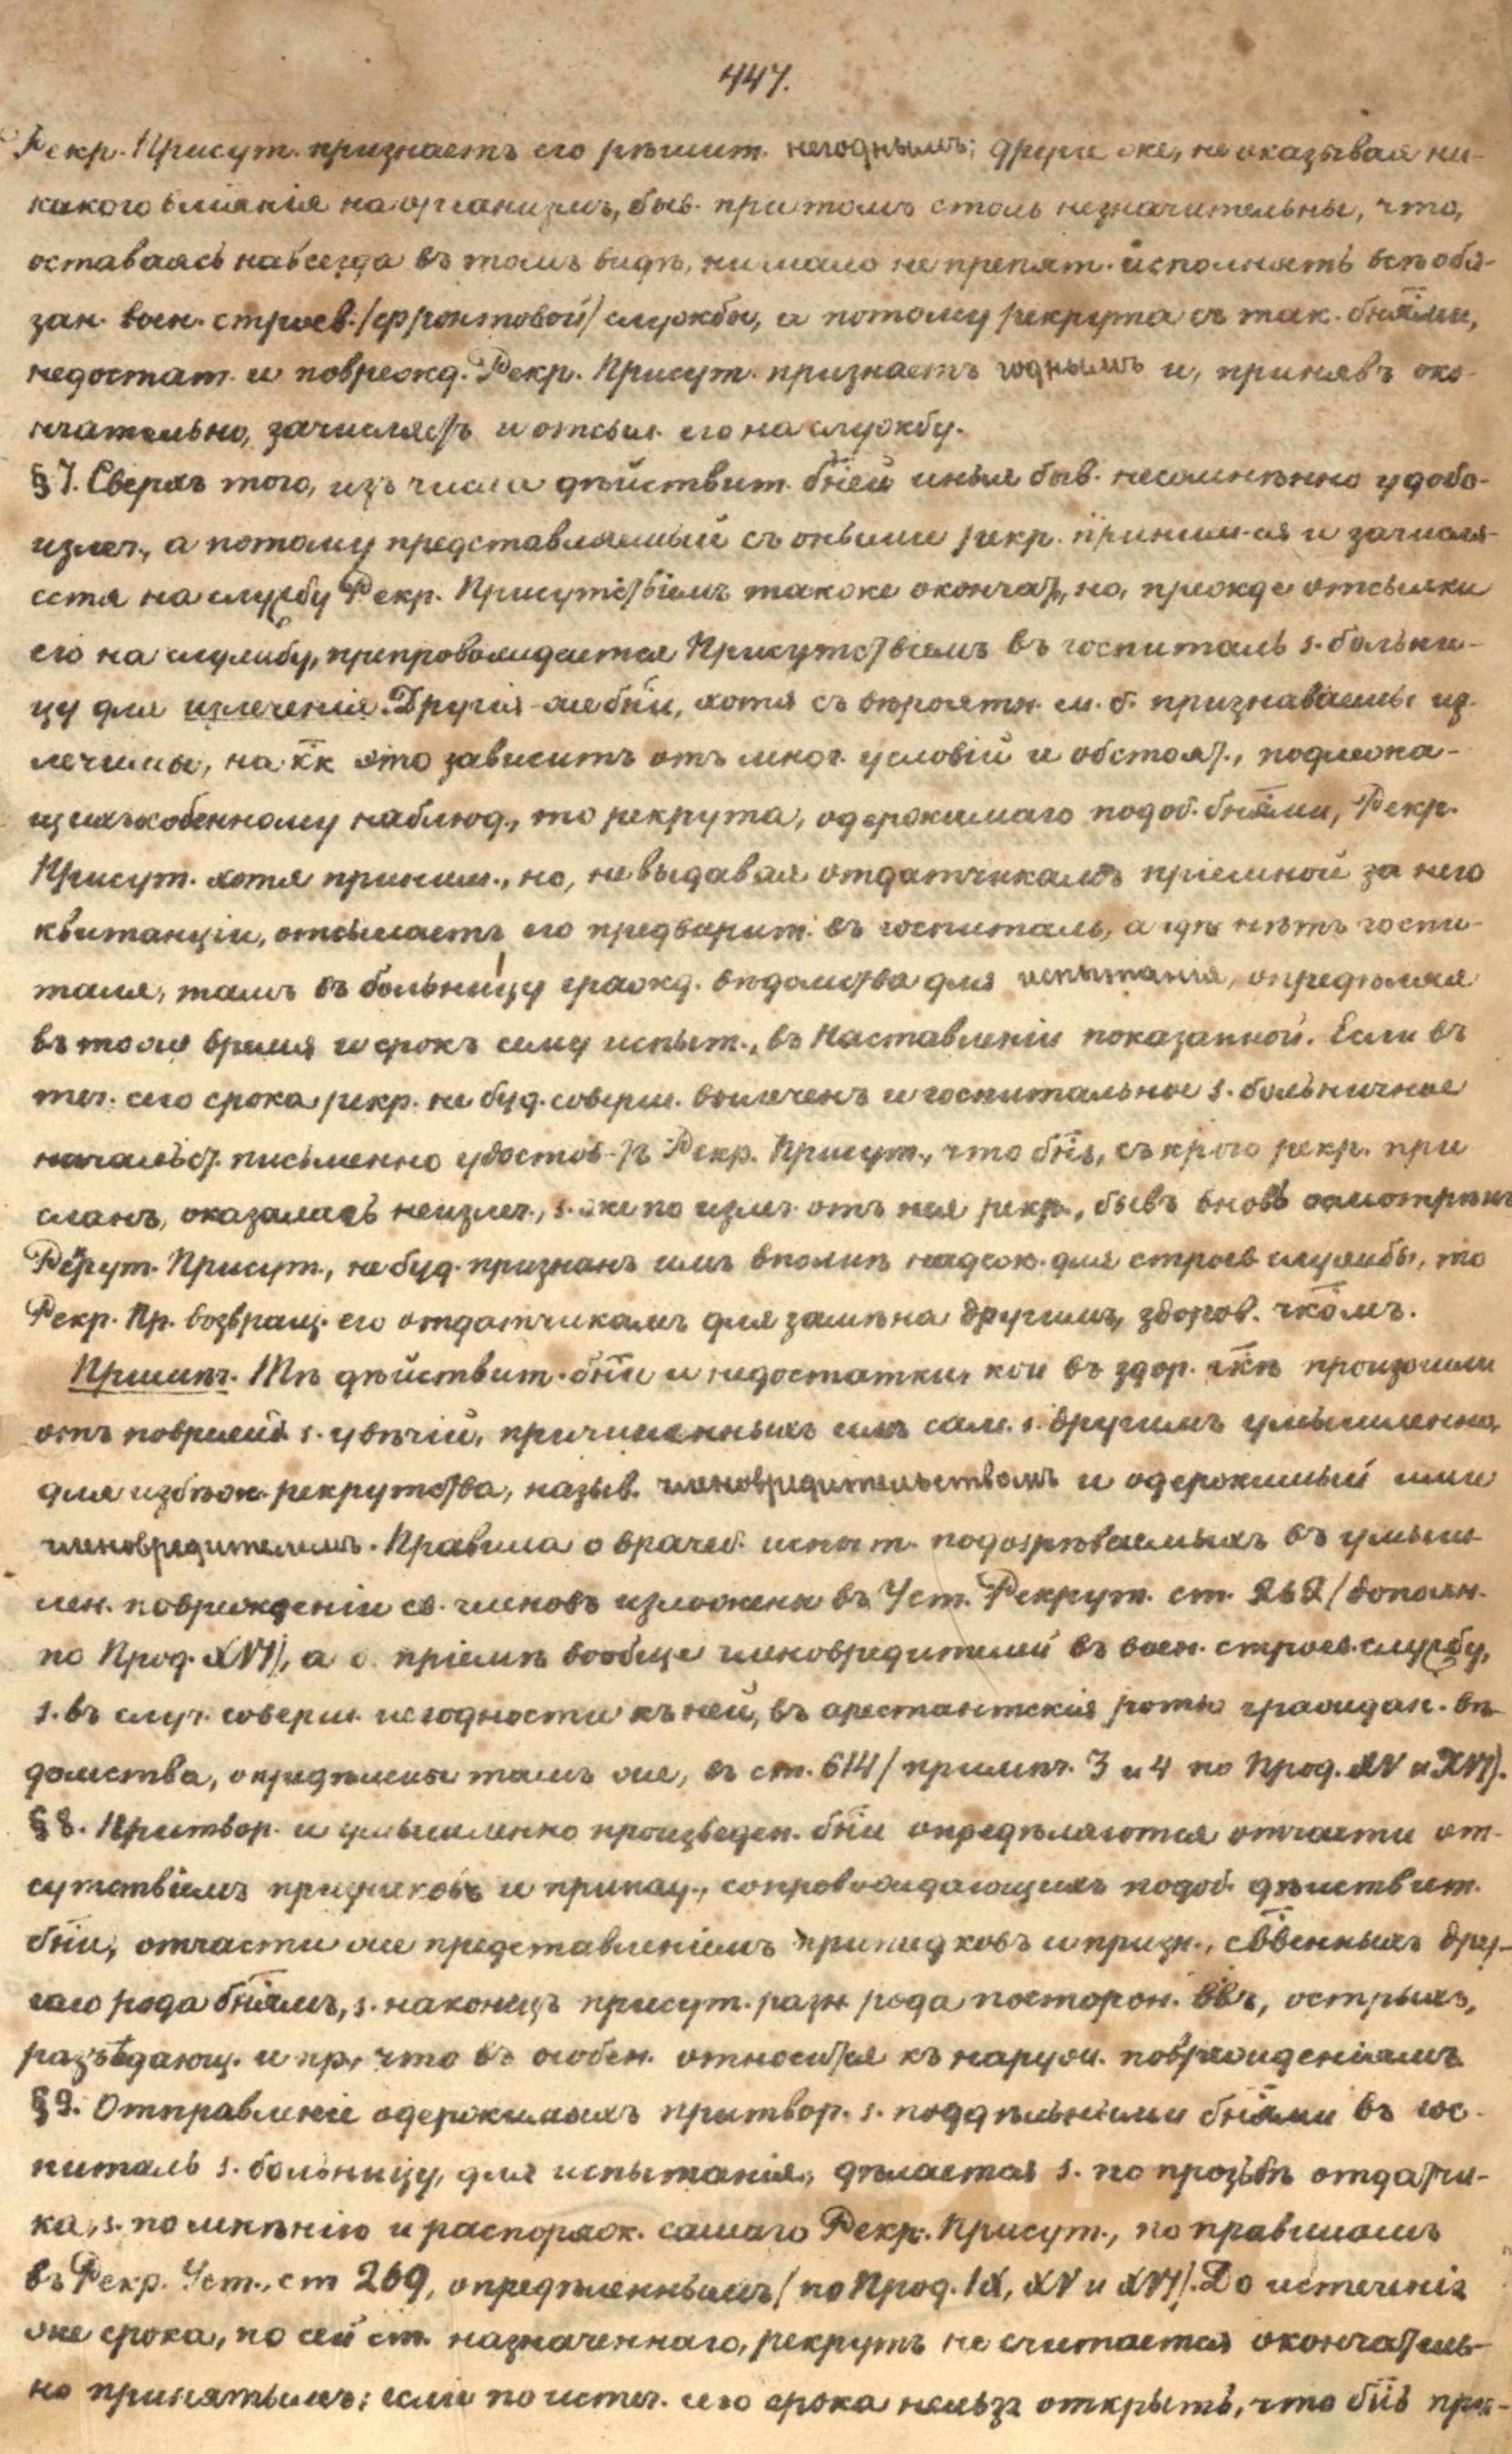 447.
Рекр. Присут. признаетъ его рѣшит. негоднымъ; другіе же, не оказывая ни-
какого вліянія на организмъ, быв. притомъ столь незначительны, что,
оставаясь навсегда въ томъ видѣ, нимало не препят. исполнять всѣ обя-
зан. воен. строев. /фронтовой/ службы, а потому рекрута съ так. бнями,
недостат. и поврежд. Рекр. Присут. признаетъ годнымъ и, принявъ око-
нчательно, зачисляетъ и отсыл. его на службу.
§ 7. Сверхъ того, изъ числа дѣйствит. бней иныя быв. несомнѣнно удобо-
излеч., а потому представляемый съ оными рекр. приним-ся и зачисля-
ется на службу Рекр. Присутствіемъ также окончат, но, прежде отсылки
его на службу, препровождается Присутствіемъ въ госпиталь s. больни-
цу для излеченія. Другія же бни, хотя съ вѣроятн. м. б. признаваемы из-
лечимы, но кк это зависитъ отъ мног. условій и обстоят., подлежа-
щихъ особенному наблюд., то рекрута, одержимаго подоб. бнями, Рекр.
Присут. хотя приним., но, не выдавая отдатчикамъ пріемной за него
квитанціи, отсылаетъ его предварит. въ госпиталь, а гдѣ нѣтъ госпи-
таля, тамъ въ больницу гражд. вѣдомства для испытанія, опредѣляя
въ тоже время и срокъ сему испыт., въ Наставленіи показанной. Если въ
теч. сего срока рекр. не буд. соверш. вылеченъ и госпитальное s. больничное
начальст. письменно удостов-тъ Рекр. Присут., что бнь, съ крою рекр. при
сланъ, оказалась неизлеч., s. же по излеч. отъ нея рекр., бывъ вновь осмотрѣнъ
Рекрут. Присут., не буд. признанъ имъ вполнѣ надеж. для строев. службы, то
Рекр. Пр. возвращ. его отдатчикамъ для замѣна другимъ, здоров. чкомъ.
Примѣч. Тѣ дѣйствит. бни и недостатки, кои въ здор. чкѣ произошли
отъ поврежд. s. увѣчій, причиненныхъ имъ сам. s. другимъ умышленно,
для избѣж. рекрутства, назыв. членовредительствомъ и одержимый ими
членовредителемъ. Правила о врачеб. испыт. подозрѣваемыхъ въ умыш-
лен. поврежденіи св. членовъ изложены въ Уст. Рекрут. ст. 262 /дополн.
по Прод. XVI/, а о пріемѣ вообще членовредителей въ воен. строев. службу,
s. въ случ. соверш. негодности къ ней, въ арестантскія роты граждан. вѣ-
домства, опредѣлены тамъ же, въ ст. 614 /примѣч. 3 и 4 по Прод. XV и XVI/.
§ 8. Притвор. и умышленно произведен. бни опредѣляются отчасти от-
сутствіемъ признаковъ и припад., сопровождающихъ подоб. дѣйствит.
бни, отчасти же представленіемъ припадковъ и призн., свѣенныхъ дру-
гаго рода бнямъ, s. наконецъ присут. разн. рода посторон. ввъ, острыхъ,
разъѣдающ. и пр., что въ особен. относится къ наруж. поврежденіямъ
§ 9. Отправленіе одержимыхъ притвор. s. поддѣльными бнями въ гос-
питаль s. больницу, для испытанія, дѣлается s. по прозьбѣ отдатчи-
ка, s. по мнѣнію и распоряж. самаго Рекр. Присут., по правиламъ
въ Рекр. Уст., ст 269, опредѣленнымъ /по Прод. IX, XV и XVI/. До истеченія
же срока, по сей ст. назначеннаго, рекрутъ не считается окончатель-
но принятымъ; если по истеч. сего срока нельзя открыть, что бнь при-